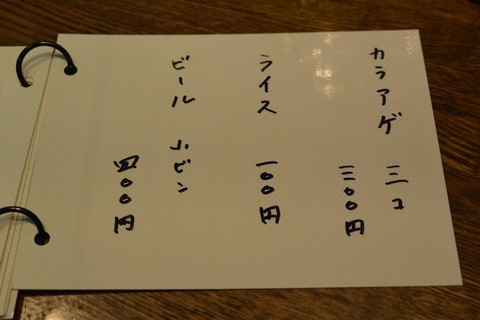 カラアゲ 三コ
三〇〇円
ライス 一〇〇円
ビール 小ビン
四〇〇円